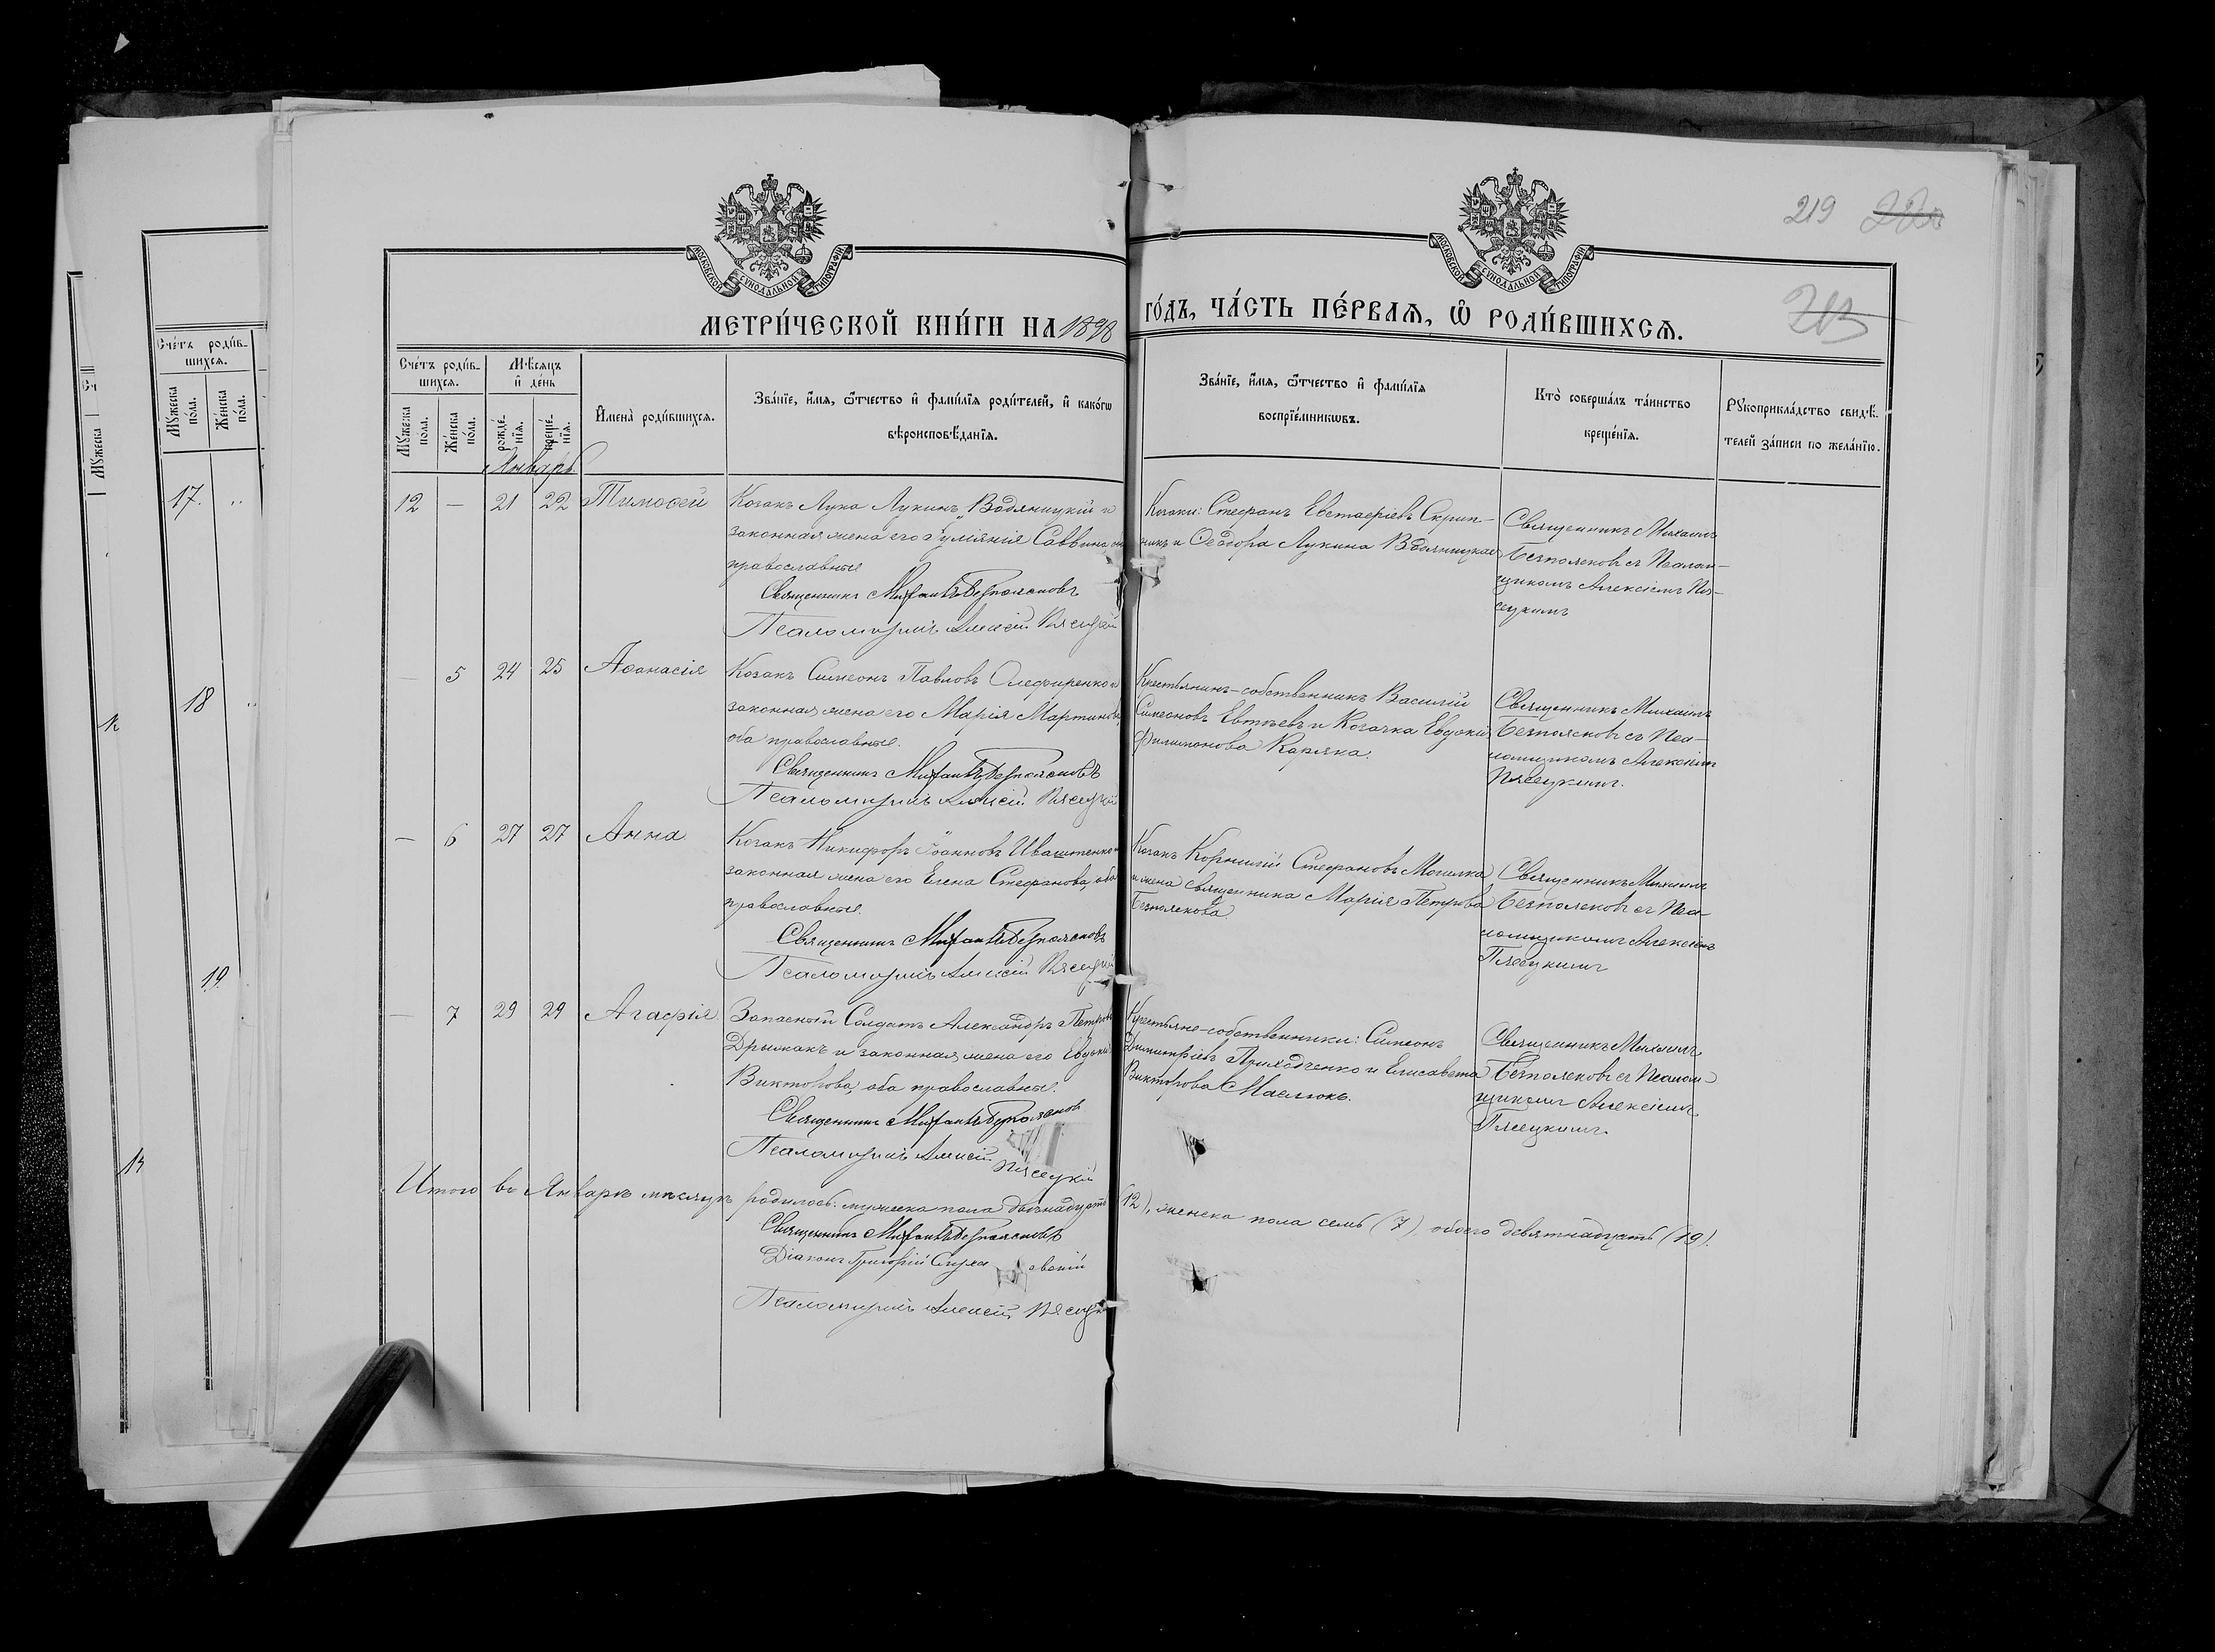 219 220
213
МОСКОВСКОЙ СУНОДАЛЬНОЙ ТИПОГРАФІИ
МОСКОВСКОЙ СУНОДАЛЬНОЙ ТИПОГРАФІИ
МЕТРИ́ЧЕСКОЙ КНИ́ГИ НА 1898 ГО́ДЪ, ЧА́СТЬ ПЕ́РВАѦ, Ѡ РОДИ́ВШИХСѦ.
Сче́тъ роди́в-
шихсѧ.
Мꙋ́жеска по́ла.
Же́нска по́ла.
Мѣ́сѧцъ и҆ де́нь
рожде́-нїѧ.
креще́-нїѧ.
И҆мена̀ роди́вшихсѧ.
Зва́нїе, и҆́мѧ, ѻ҆́тчество и҆ фами́лїѧ роди́телей, и҆ како́гѡ
вѣроисповѣ́данїѧ.
Зва́нїе, и҆́мѧ, ѻ҆́тчество и҆ фами́лїѧ
воспрїе́мникѡвъ.
Кто̀ соверша́лъ та́инство
креще́нїѧ.
Рꙋкоприкла́дство свидѣ́-
телей за́писи по жела́нїю.
Январь
12 — 21 22 Тимоѳей
Козакъ Лука Лукинъ Водяницкій и
законная жена его Евѳимія Саввина, оба
православные
Священникъ Михаилъ Безпояковъ
Псаломщикъ Алексій Пясецкій
Козаки: Стефанъ Евстафіевъ Скрип-
никъ и Ѳеодора Лукина Водяницкая
Священникъ Михаилъ
Безпояковъ съ Псалом-
щикомъ Алексіемъ Пя-
сецкимъ
— 5 24 25 Аѳанасія
Козакъ Симеонъ Павловъ Олефиренко и
законная жена его Марія Мартинова,
оба православные.
Священникъ Михаилъ Безпояковъ
Псаломщикъ Алексій Пясецкій
Крестьянинъ-собственникъ Василій
Симеоновъ Евтѣевъ и Козачка Евдокія
Филимонова Карлка.
Священникъ Михаилъ
Безпояковъ съ Пса-
ломщикомъ Алексіемъ
Пясецкимъ.
— 6 27 27 Анна
Козакъ Никифоръ Іоанновъ Иващенко и
законная жена его Елена Стефанова, оба
православные.
Священникъ Михаилъ Безпояковъ
Псаломщикъ Алексій Пясецкій
Козакъ Корнилій Стефановъ Могилка
и жена священника Марія Петрова
Безпоякова.
Священникъ Михаилъ
Безпояковъ съ Пса-
ломщикомъ Алексіемъ
Пясецкимъ
— 7 29 29 Агафія.
Запасный Солдатъ Александръ Петровъ
Дрыжакъ и законная жена его Евдокія
Викторова, оба православные.
Священникъ Михаилъ Безпояковъ
Псаломщикъ Алексій Пясецкій
Крестьяне-собственники: Симеонъ
Димитріевъ Приходченко и Елисавета
Викторова Маслюкъ.
Священникъ Михаилъ
Безпояковъ съ Псалом-
щикомъ Алексіемъ
Пясецкимъ.
Итого въ Январѣ мѣсяцѣ родилось: мужеска пола двѣнадцать (12), женска пола семь (7), обоего девятнадцать (19).
Священникъ Михаилъ Безпояковъ
Діаконъ Григорій
Псаломщикъ Алексій Пясецкій
Сче́тъ роди́в-
шихсѧ.
Мꙋ́жеска по́ла.
Же́нска по́ла.
17.
18
19
Мꙋ́жеска